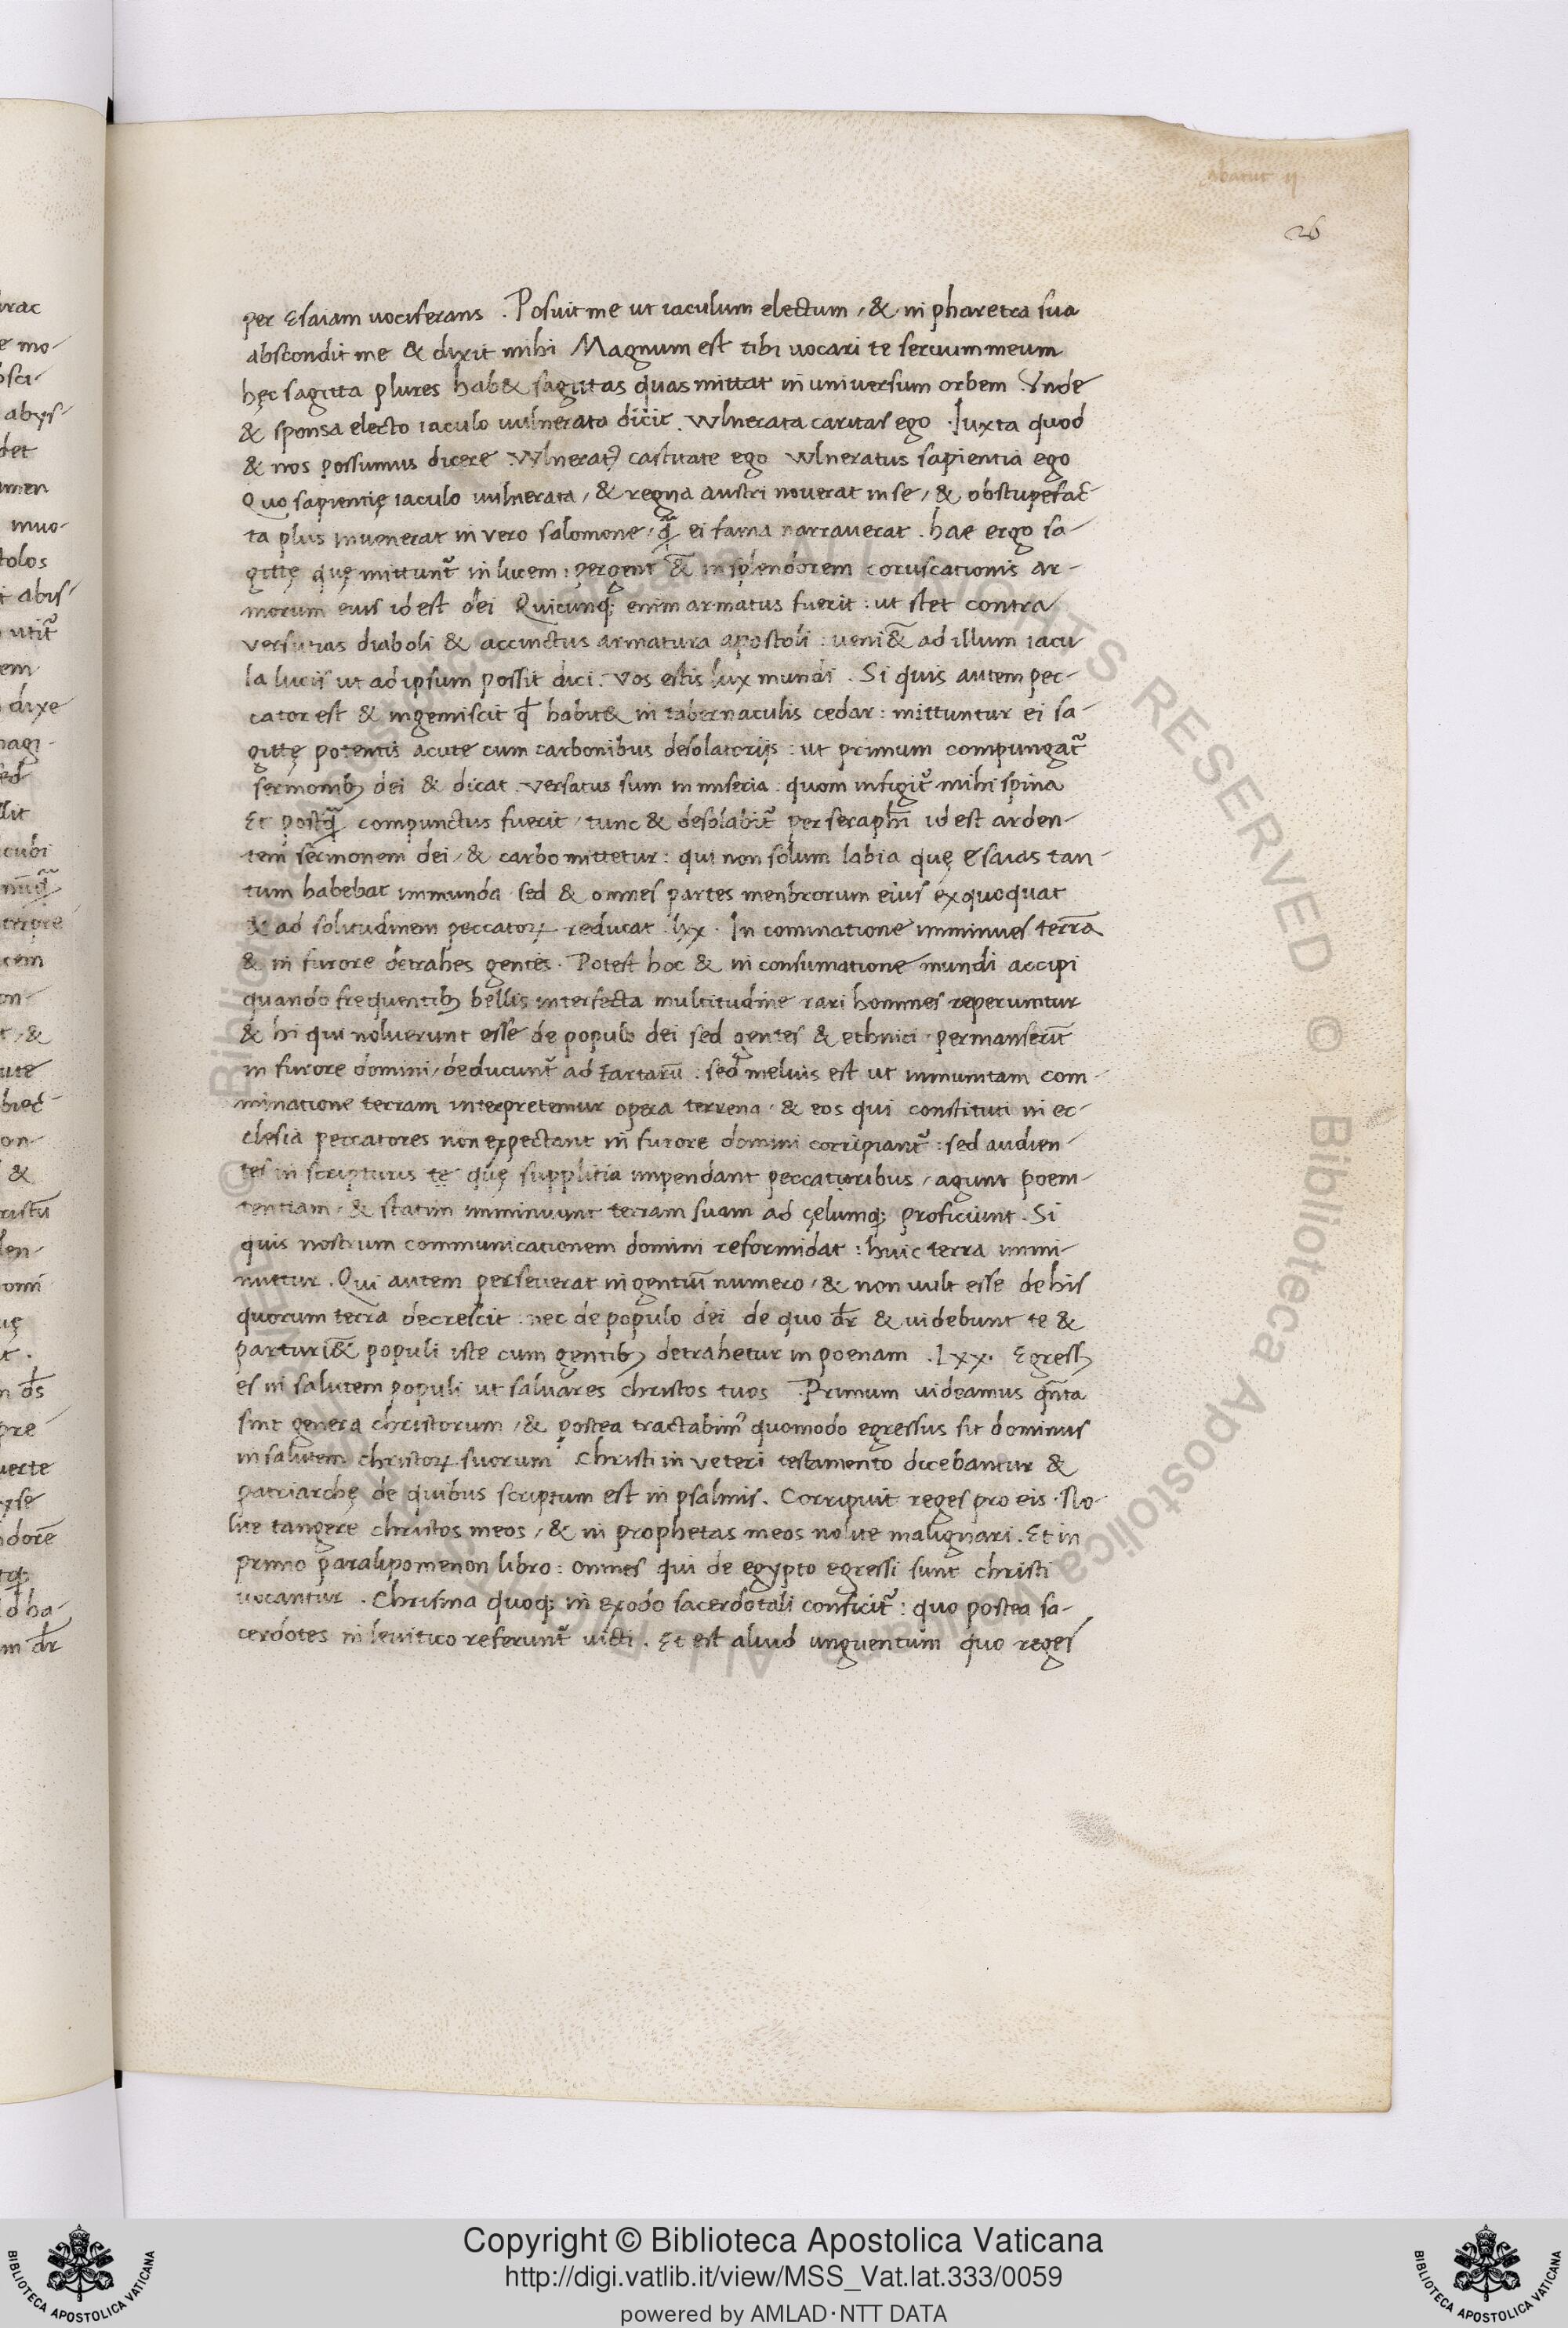 abacuc ij
26
per Esaiam uociferans . Posuit me ut iaculum electum , & in pharetra sua
abscondit me & dixit mihi Magnum est tibi uocari te seruum meum
hęc sagitta plures hab& sagittas quas mittat in uniuersum orbem . Vnde
& sponsa electo iaculo uulnerata dicit . Wlnerata caritas ego . Iuxta quod
& nos possumus dicere . Wlneratꝰ castitate ego Wlneratus sapientia ego
Quo sapientię iaculo uulnerata , & regna austri nouerat in se , & obstupefac-
ta plus inuenerat in uero salomone , ꝗ̃ ei fama narrauerat . hae ergo sa-
gittę quę mittunt̃ in lucem : pergent & in splendorem coruscationis ar-
morum eius id est dei Quicunq; enim armatus fuerit : ut stet contra
uersutias diaboli & accinctus armatura apostoli : ueni&̃ ad illum iacu
la lucis ut ad ipsum possit dici . Vos estis lux mundi . Si quis autem pec-
cator est & ingemiscit ꝗ habit& in tabernaculis cedar : mittuntur ei sa-
gittę potentis acute cum carbonibus desolatorijs : ut primum compungat̃
sermonibꝫ dei & dicat . Versatus sum in miseria : quom infigit̃ mihi spina
Et postꝗ̃ compunctus fuerit , tunc & desolabit̃ per seraphī id est arden-
tem sermonem dei , & carbo mittetur : qui non solum labia quę esaias tan-
tum habebat immunda sed & omnes partes menbrorum eius exquoquat
& ad solitudinem peccatoꝝ reducat . lxx . In cominatione imminues terrā
& in furore detrahes gentes . Potest hoc & in consumatione mundi accipi
quando frequentibꝫ bellis interfecta multitudine rari homines reperiuntur
& hi qui noluerunt esse de populo dei sed gentes & ethnici permanserūt
in furore domini , deducunt̃ ad tartarū . sed melius est ut imminutam com-
minatione terram interpretemur opera terrena , & eos qui constituti in ec-
clesia peccatores non expectant in furore domini corripiant̃ : sed audien-
tes in scripturis te quę supplitia impendant peccatoribus , agunt poeni-
tentiam , & statim imminuunt terram suam ad cęlumq; proficiunt . Si
quis nostrum communicationem domini reformidat : huic terra immi-
nuetur . Qui autem perseuerat in gentiū numero , & non uult esse de his
quorum terra decrescit : nec de populo dei de quo dr̄ & uidebunt te &
parturi&̃ populi iste cum gentibꝫ detrahetur in poenam . Lxx . Egressꝫ
es in salutem populi ut saluares christos tuos . Primum uideamus qn̄ta
sint genera christorum , & postea tractabimꝰ quomodo egressus sit dominus
in salutem christoꝝ suorum . Christi in ueteri testamento dicebantur &
patriarchę de quibus scriptum est in psalmis . Corripuit reges pro eis . No-
lite tangere christos meos , & in prophetas meos nolite malignari . Et in
primo paralipomenon libro : omnes qui de egypto egressi sunt christi
uocantur . Chrisma quoq; in exodo sacerdotali conficit̃ : quo postea sa-
cerdotes in leuitico referunt̃ uicti . Et est aliud unguentum quo reges
Copyright © Biblioteca Apostolica Vaticana
http://digi.vatlib.it/view/MSS_Vat.lat.333/0059
powered by AMLAD·NTT DATA
BIBLIOTECA APOSTOLICA VATICANA
BIBLIOTECA APOSTOLICA VATICANA